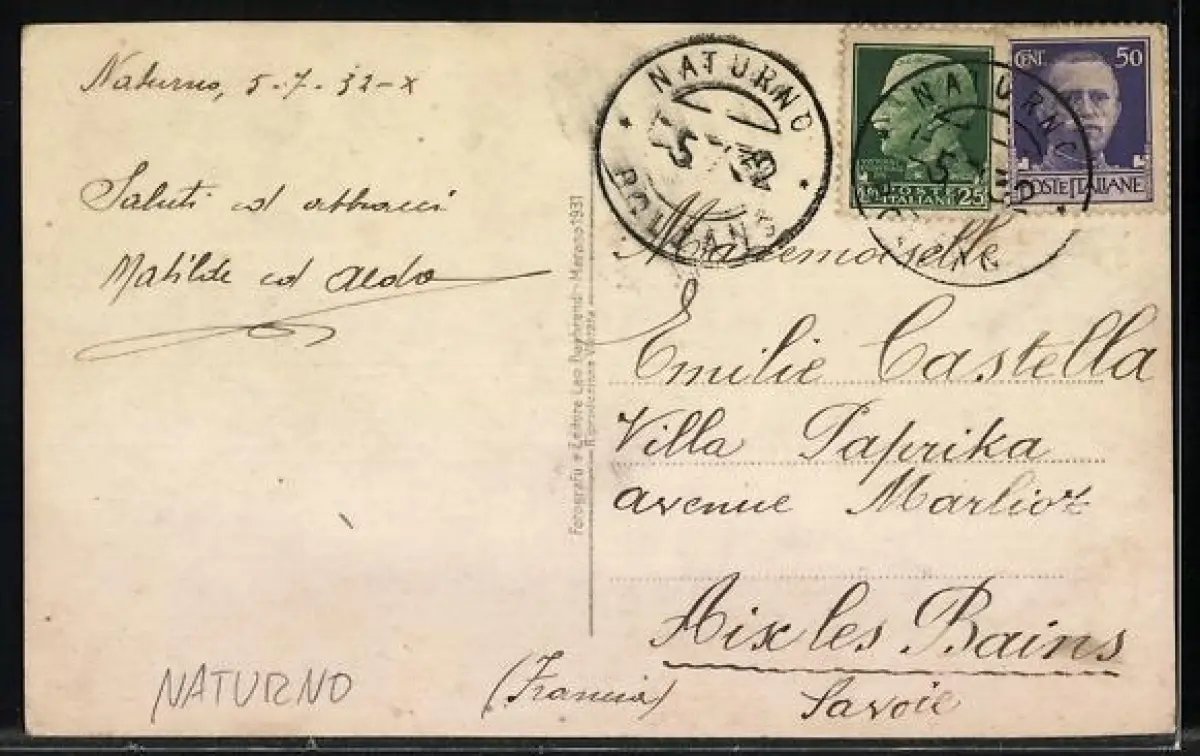 Naturno, 5-7-32-X
Saluti ed abbracci
Matilde ed Aldo
NATURNO
Fotografo e Editore Leo Baehrendt - Merano 1931
Riproduzione Vietata
NATURNO
5 7 32
BOLZANO
NATURNO
5
POSTE
ITALIANE 25
CENT 50
POSTE ITALIANE
Mademoiselle
Emilie Castella
Villa Paprika
avenue Marlioz
Aix les Bains
(Francia) Savoie